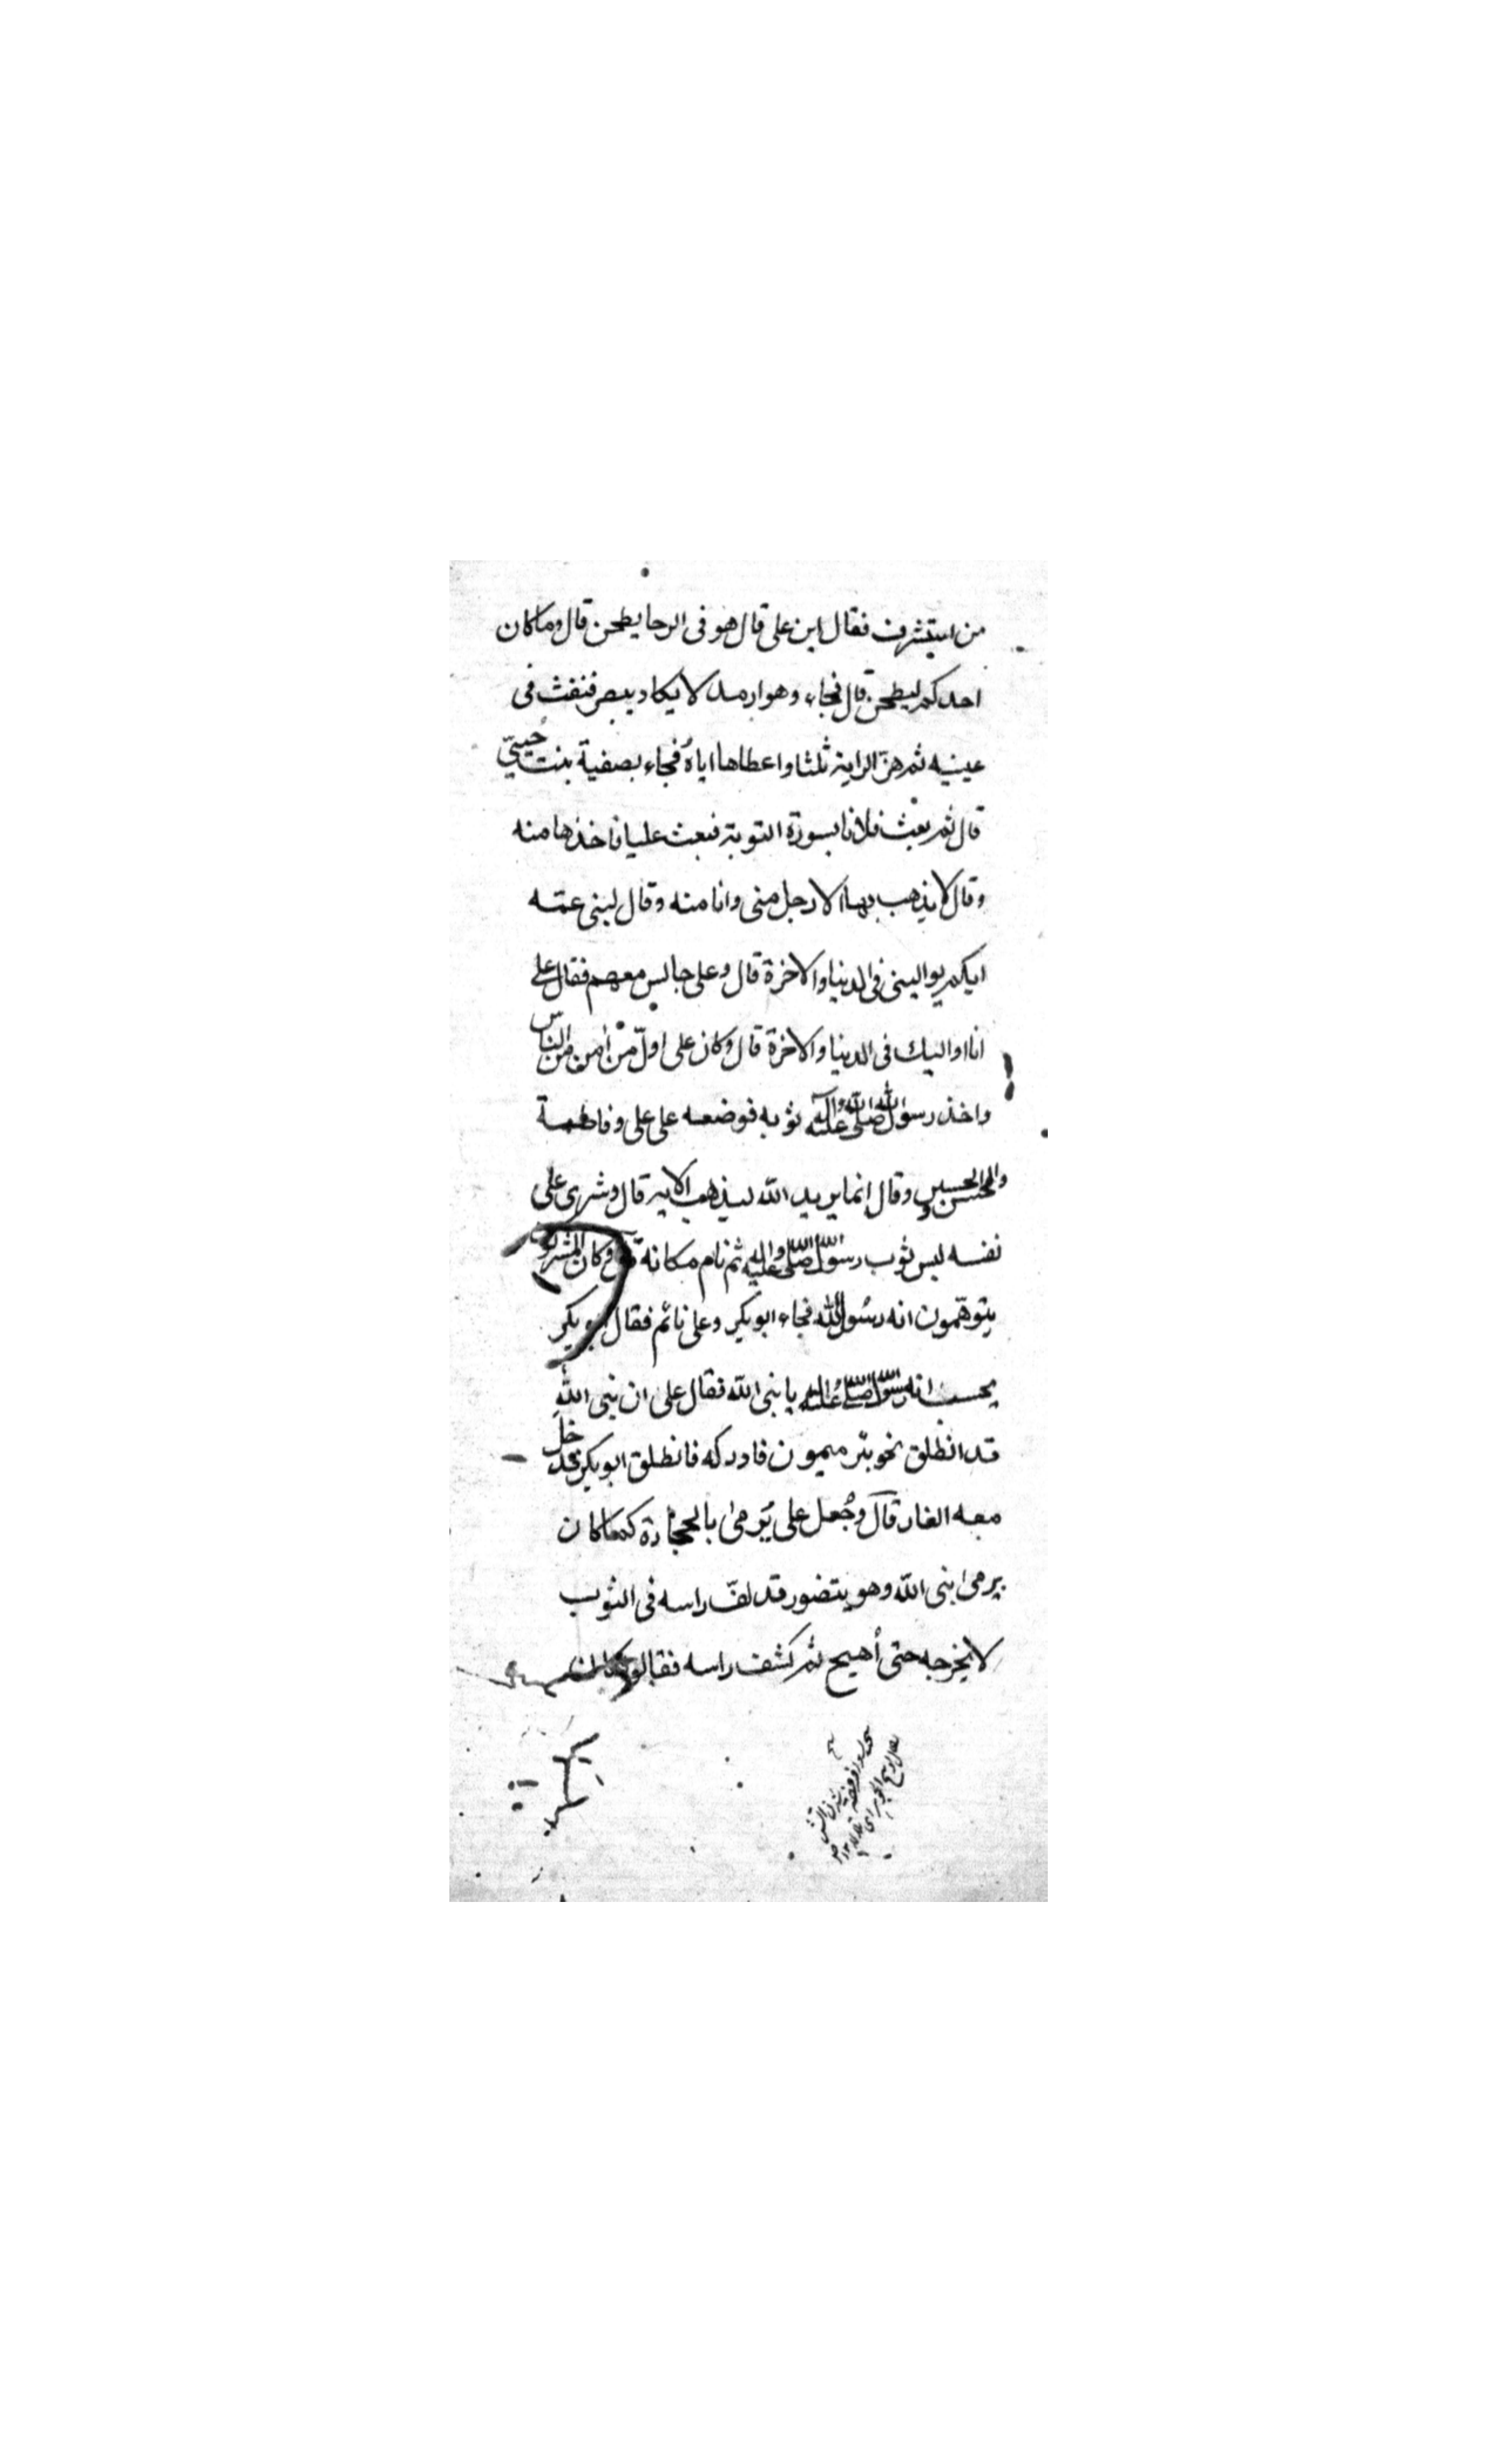 من استشرف فقال اين على قال هو فى الرحا يطحن قال وما كان
احدكم ليطحن قال فجاء وهو ارمد لا يكاد يبصر فنفث فى
عينيه ثم هز الراية ثلثا واعطاها اياه فجاء بصفية بنت حُييّ
قال ثم بعث فلانا بسورة التوبة فبعث عليا فاخذها منه
وقال لا يذهب بها الا رجل منى وانا منه وقال لبنى عمه
ايكم يوالينى فى الدنيا والاخرة قال وعلى جالس معهم فقال على
انا اواليك فى الدنيا والاخرة قال وكان على اولّ من امن من الناس
واخذ رسول الله صلى الله عليه وآله ثوبه فوضعه على على وفاطمة
والحسن والحسين وقال إنما يريد الله ليذهب الاية قال وشرى على
نفسه لبس ثوب رسول الله صلى الله عليه واله ثم نام مكانة وكان المشركون
يتوهّمون انه رسُول الله فجاء ابو بكر وعلى نائم فقال ابو بكر
يحسب انه رسول الله صلى الله عليه يا بنى الله فقال على ان نبى الله
قد انطلق نحو بئر ميمون فادركه فانطلق ابو بكر فدخل
معه الغار قال وجُعل على يُرمى بالحجارة كما كان
يرمى نبى الله وهو يتضور قد لفّ راسه فى الثوب
لا يخرجه حتى أصبح ثم كشف راسه فقالوا كان